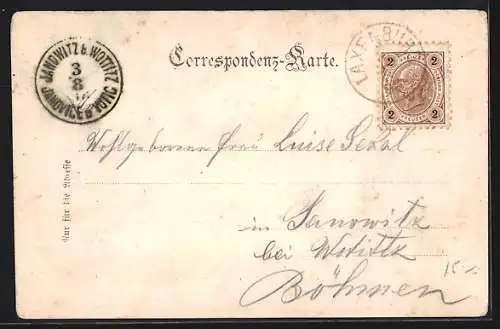 Correspondenz-Karte.
JANOWITZ b. WOTTITZ
3
8
JANOVICE
LAXENBURG
2 2
2 2
Wohlgeboren Frau Luise Sekal
Nur für die Adresse
in Janowitz
bei Wotitz
Böhmen